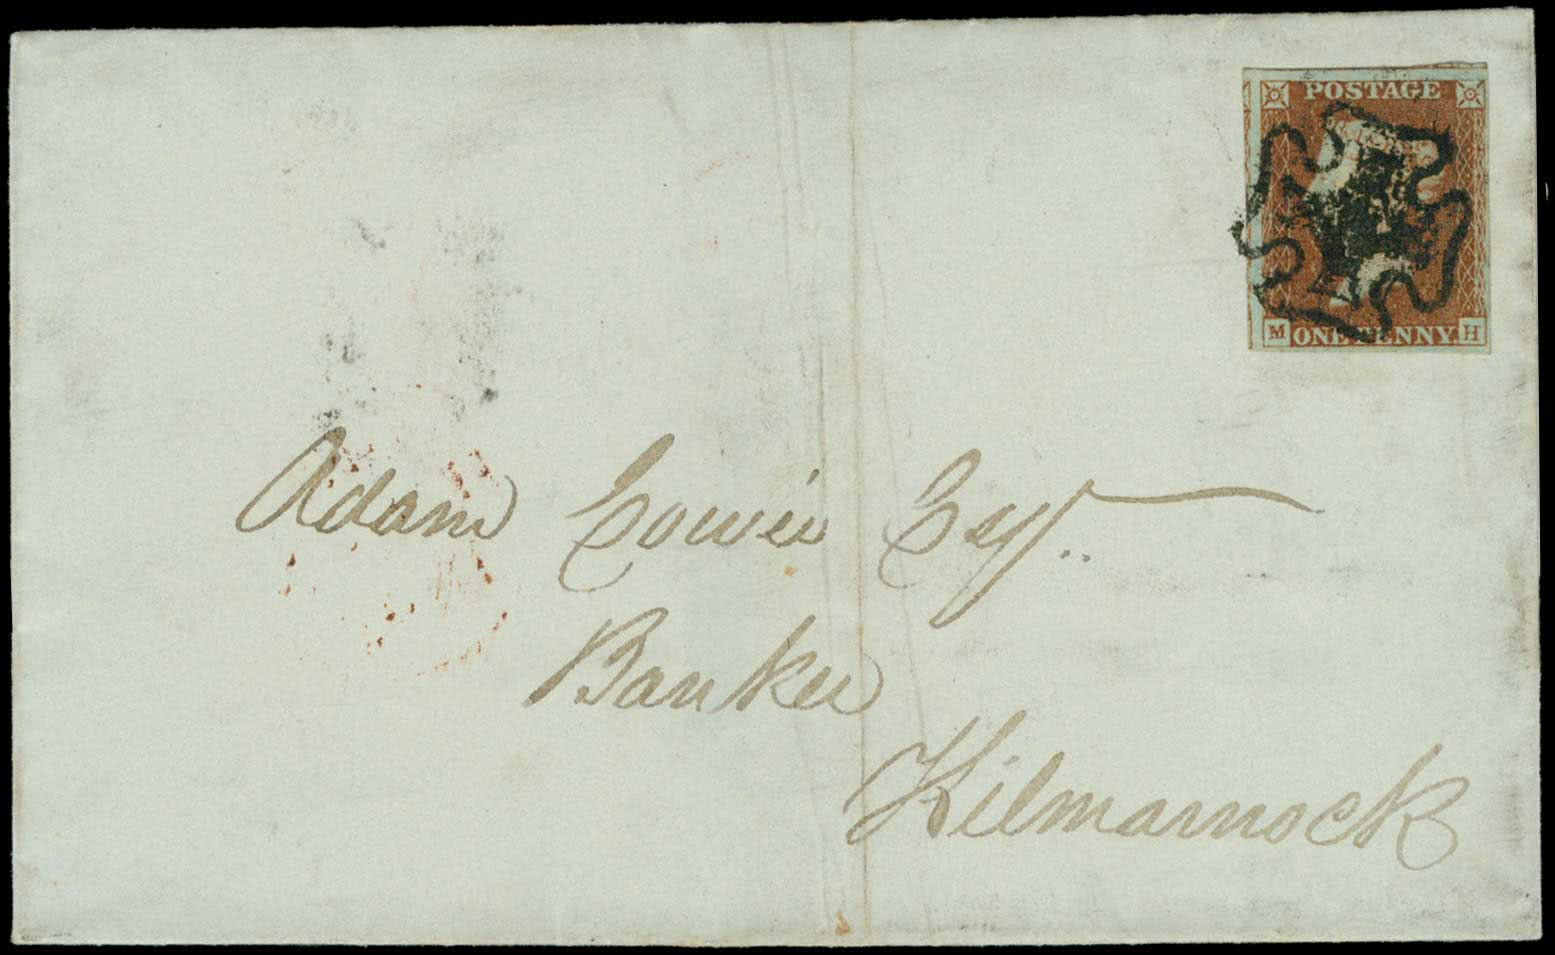 POSTAGE
M ONE PENNY. H
Adam Cowie Esqr.
Banker
Kilmarnock